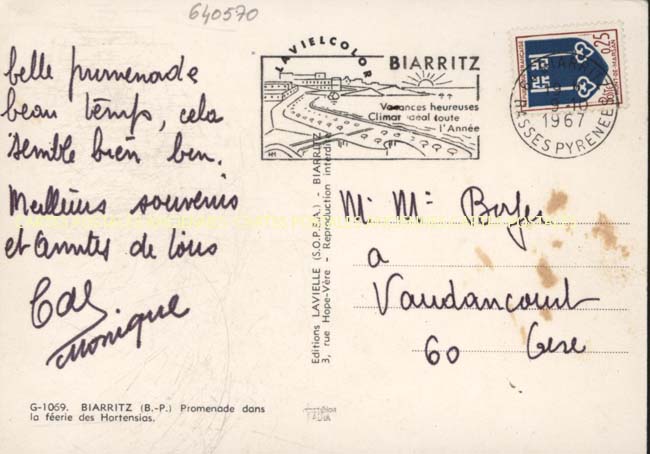 640570
belle promenade
beau temps, cela
semble bien ben.
Meilleurs souvenirs
et amitiés de tous
Monique
G-1069. BIARRITZ (B.-P.) Promenade dans
la féerie des Hortensias.
LAVIELCOLOR
BIARRITZ
Vacances heureuses
Climat idéal toute
l'Année
HM
Editions LAVIELLE (S.O.P.E.A.) - BIARRITZ
3, rue Hope-Vère - Reproduction interdite
0,25
MONT-DE-MARSAN
BIARRITZ
1967
BASSES PYRENEES
M. Mme
a
Vaudancourt
60 Oise